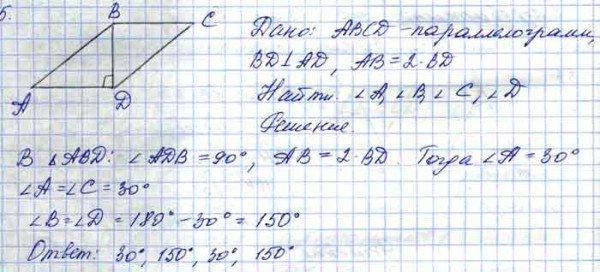 5.
B
C
A
D
Дано: ABCD - параллелограмм,
BD⊥AD, AB=2·BD
Найти: ∠A, ∠B, ∠C, ∠D
Решение.
В △ABD: ∠ADB = 90°, AB = 2·BD. Тогда ∠A = 30°
∠A = ∠C = 30°
∠B = ∠D = 180° - 30° = 150°
Ответ: 30°, 150°, 30°, 150°